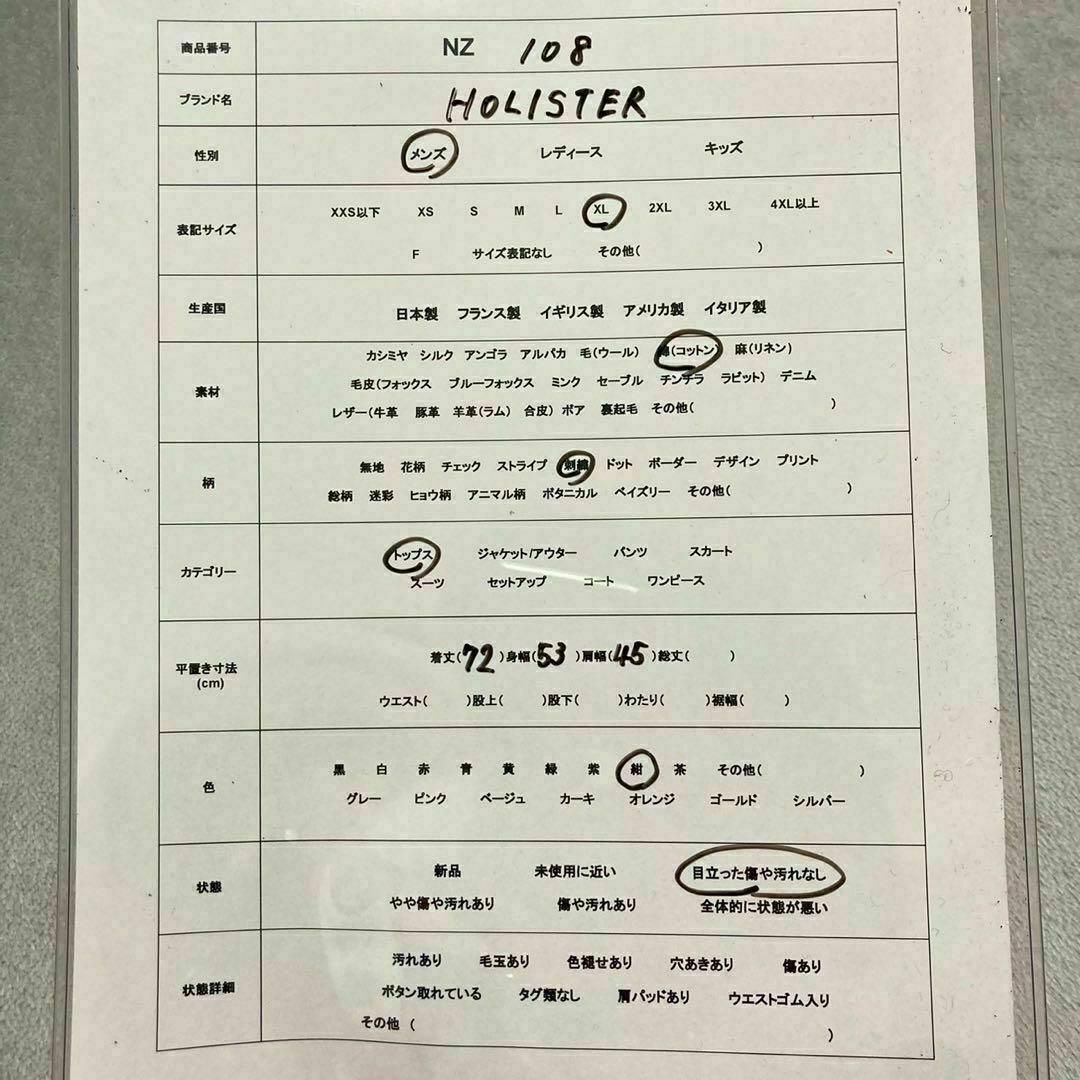 商品番号 NZ 108
ブランド名 HOLISTER
性別 メンズ レディース キッズ
表記サイズ
XXS以下 XS S M L XL 2XL 3XL 4XL以上
F サイズ表記なし その他( )
生産国 日本製 フランス製 イギリス製 アメリカ製 イタリア製
素材
カシミヤ シルク アンゴラ アルパカ 毛(ウール) 綿(コットン) 麻(リネン)
毛皮(フォックス ブルーフォックス ミンク セーブル チンチラ ラビット) デニム
レザー(牛革 豚革 羊革(ラム) 合皮) ボア 裏起毛 その他( )
柄
無地 花柄 チェック ストライプ 刺繍 ドット ボーダー デザイン プリント
総柄 迷彩 ヒョウ柄 アニマル柄 ボタニカル ペイズリー その他( )
カテゴリー
トップス ジャケット/アウター パンツ スカート
スーツ セットアップ コート ワンピース
平置き寸法
(cm)
着丈(72)身幅(53)肩幅(45)総丈( )
ウエスト( )股上( )股下( )わたり( )裾幅( )
色
黒 白 赤 青 黄 緑 紫 紺 茶 その他( )
グレー ピンク ベージュ カーキ オレンジ ゴールド シルバー
状態
新品 未使用に近い 目立った傷や汚れなし
やや傷や汚れあり 傷や汚れあり 全体的に状態が悪い
状態詳細
汚れあり 毛玉あり 色褪せあり 穴あきあり 傷あり
ボタン取れている タグ類なし 肩パッドあり ウエストゴム入り
その他 ( )